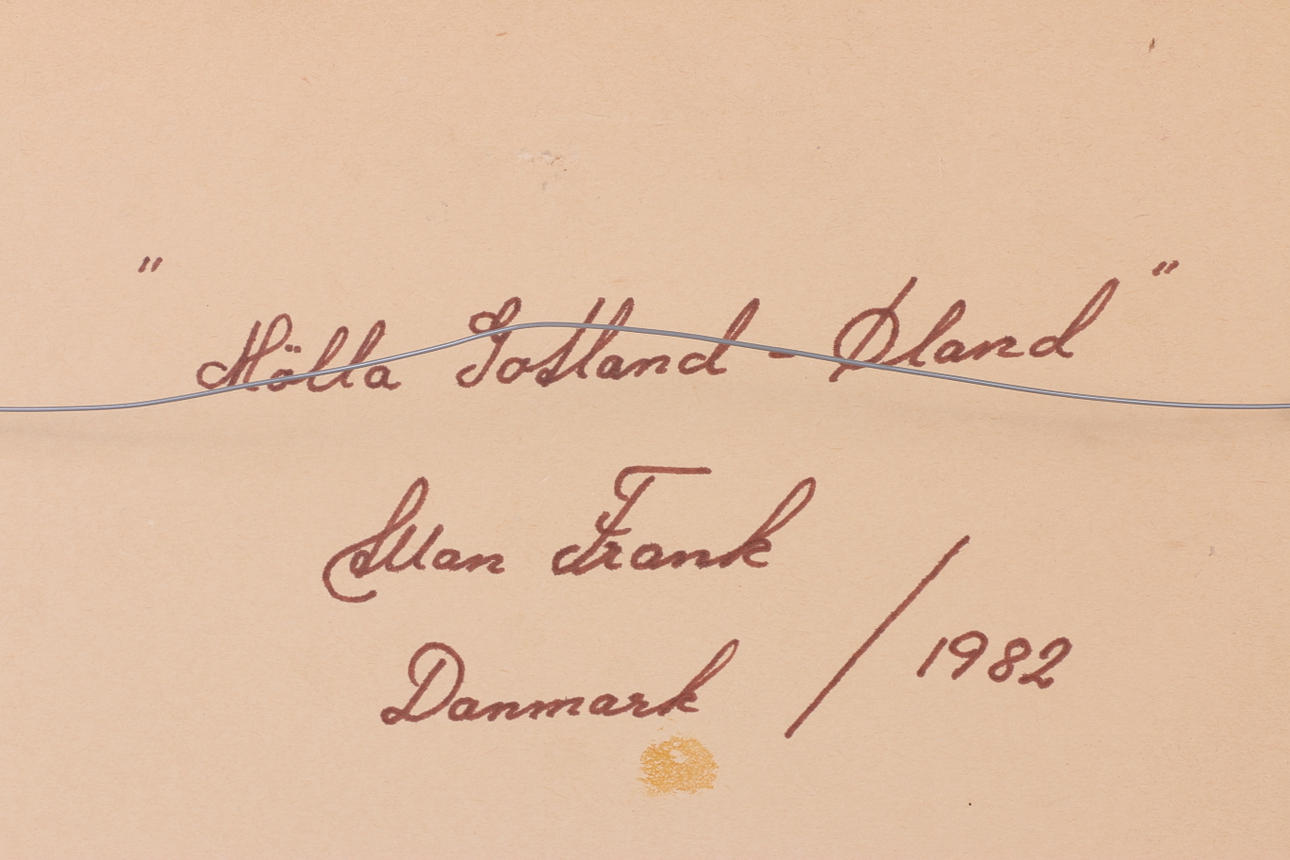 " Mölla Gotland - Øland "
Allan Frank
Danmark / 1982